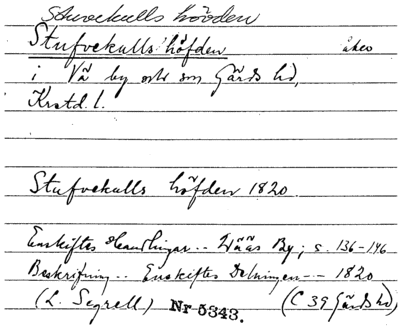 Stuvekulls hövden
Stufvekulls höfden åker
i Vä by och sn Gärds hd,
Krstd. l.
Stufvekulls höfden 1820
Enskiftes Handlingar.. Wääs By; s. 136-146
Beskrifning.. Enskiftes Delningen -- 1820
(L. Segrell) Nr 5343. (C 39 Gärds hd)